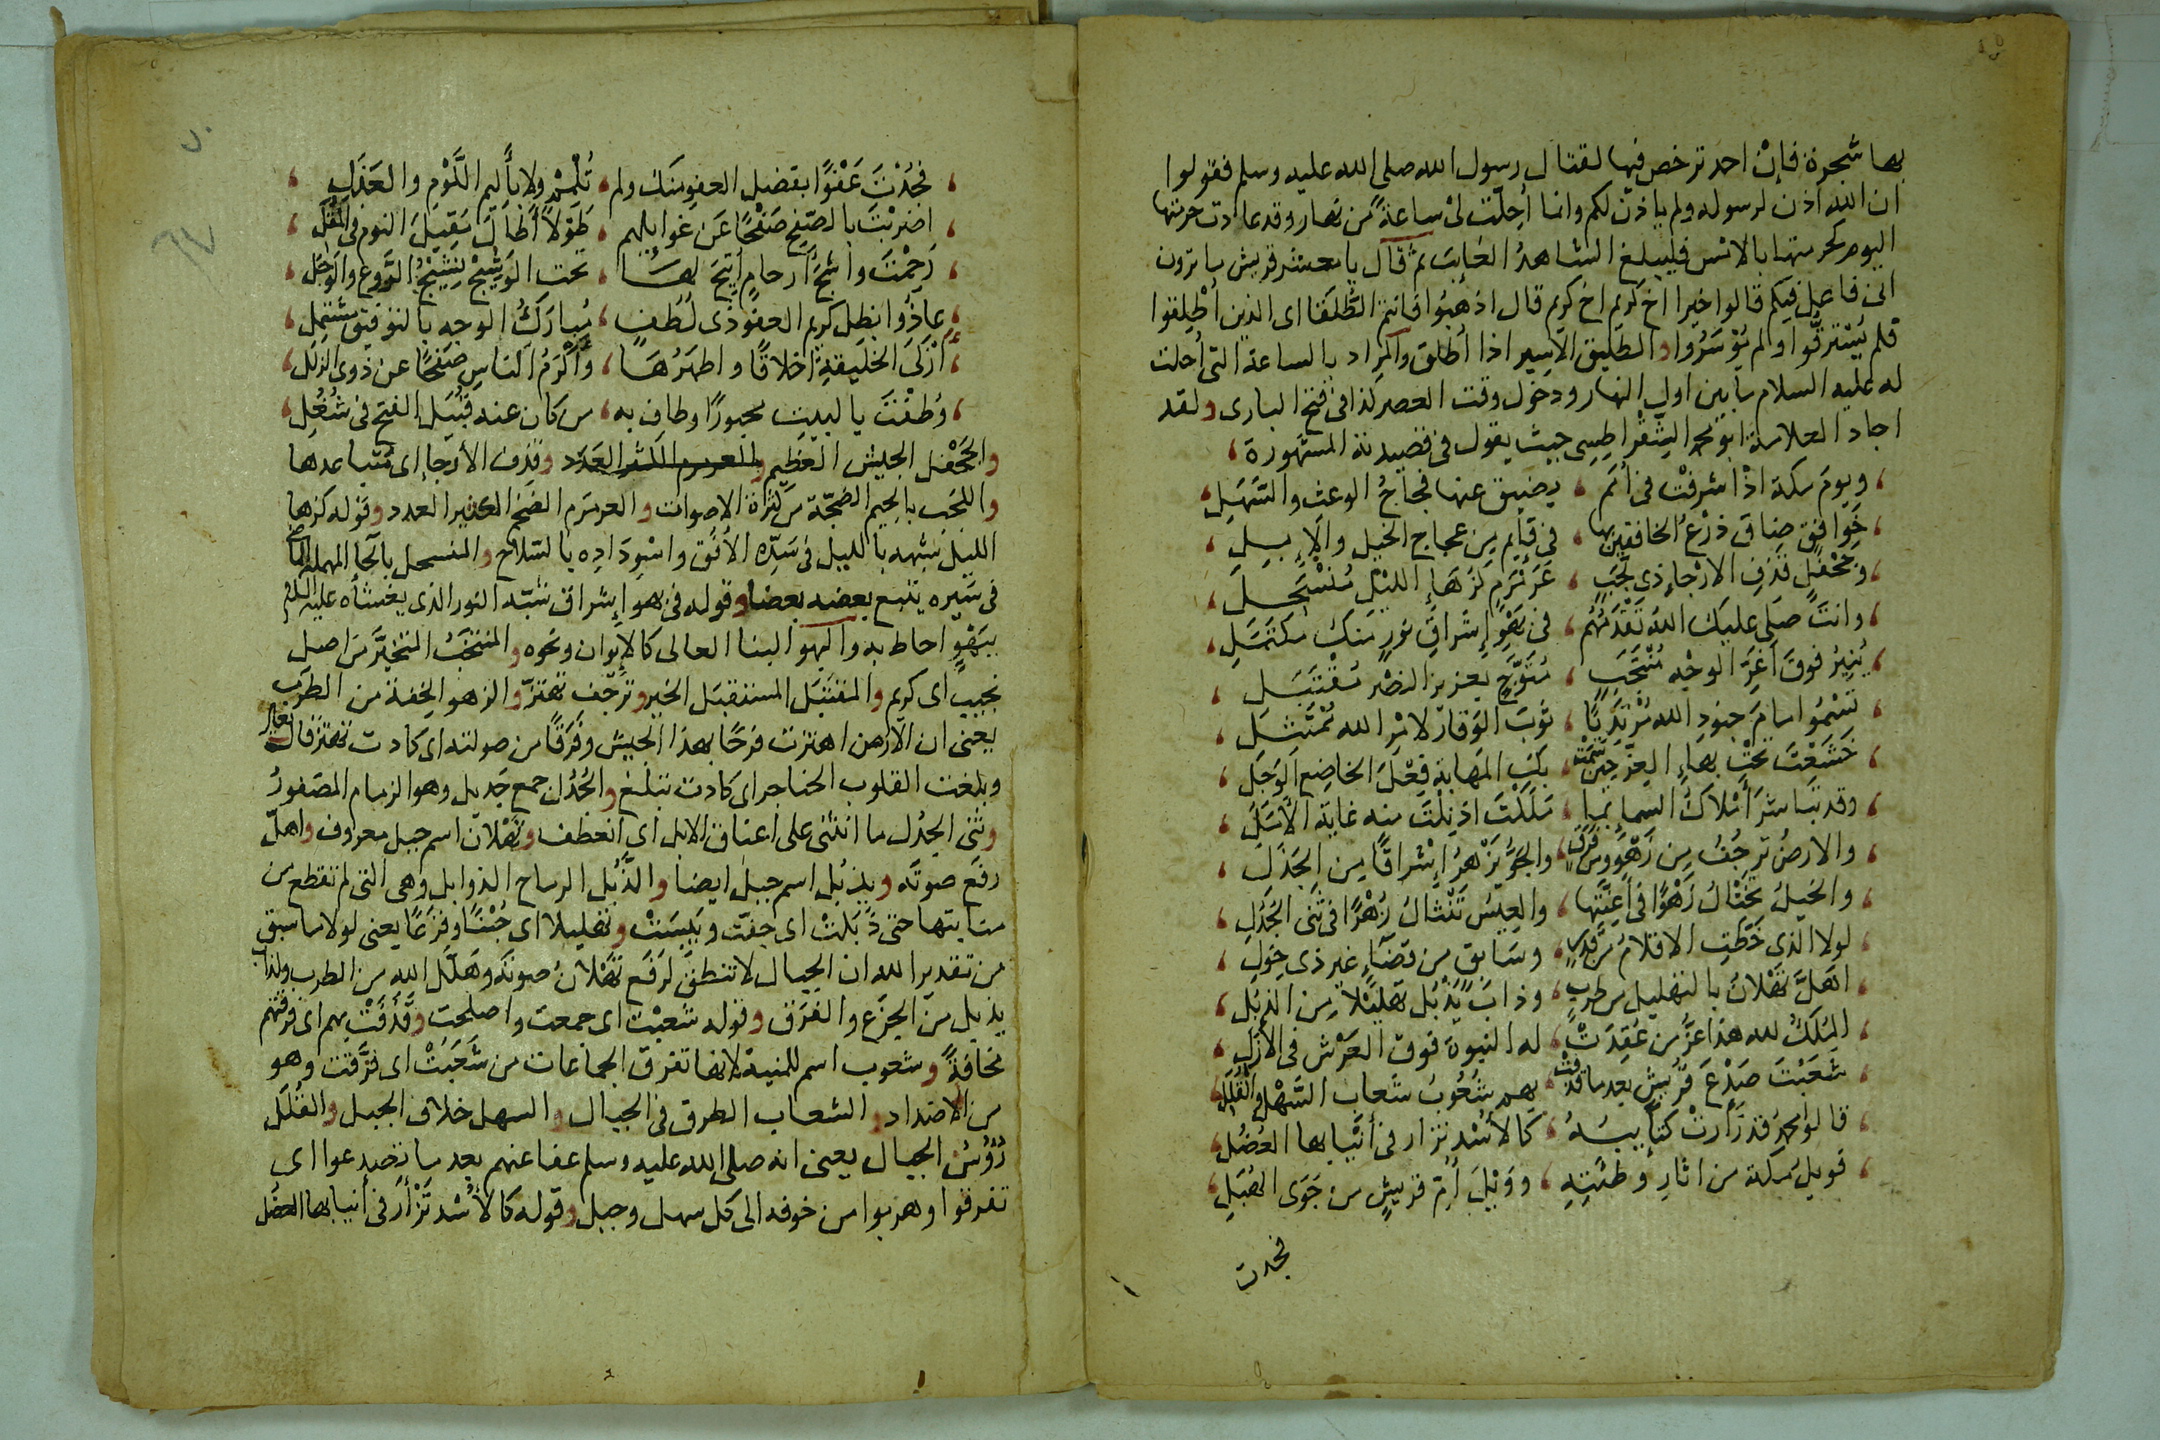 بها شجرة فإنْ احد ترخص فيها لقتال رسول الله صلى الله عليه وسلم فقولوا
ان الله اذن لرسوله ولم ياذن لكم وانما أُحِلّت لىْ ساعةً من نهار وقد عادت حرمتها
اليوم كحرمتها بالامس فليبلغ الشاهدُ الغايبَ ثم قال يا معشر قريش ما ترون
انى فاعل فيكم قالوا خيرا اخ كريم اخ كريم قال اذهبُوا فانتم الطُّلَقَا اى الذين أُطْلِقوا
فلم يُسْترقُّوا ولم يُوْسَرُوا والطليق الاسِير اذا أُطلق والمراد بالساعة التى أُحلت
له عليه السلام ما بين اول النهار ودخول وقت العصر كذا فى فتح البارى ولقد
اجاد العلامة ابو محمد الشَّقْراطِيسِى حيث يقول فى قصيدته المشهورة
ويومَ مكة اذْ اشرفتَ فى أمم ، يضيق عنها فجاجُ الوعث والسَّهَلِ
خَوافِقٍ ضاق ذرْعُ الخافقين بها ، فى قايمٍ من عجاج الخيل والإِبِلِ
وجَحْفلٍ قذِفِ الارْجاءِ ذى لَجَبٍ ، عَرَمْرَمٍ كَزُهَاءِ الليْلِ مُنْسَحِلِ
وانتَ صلى عليك اللهُ تَقْدُمُهُم ، فى بَهْوِ إشراقِ نورٍ منكَ مكتمَلِ
يُنِيرُ فوقَ أغَرّ الوجْه مُنْتَجَبٍ ، مُتَوَّجٍ بعزيز النصْر مُقْتَبَلِ
تسْمُوا امامَ جنودِ الله مُرْتَدِيًا ، ثوبَ الوَقارِ لامْرِ الله مُمْتَثِلِ
خَشَعْتَ تحْتَ بهاءِ العِزّ حِيْنَ سَمَتْ ، بكَ المهَابة فِعْلَ الخاضِع الوَجِلِ
وقد تباشرَ أمْلاكُ السما بما ، مَلَكْتَ اذ نِلْتَ منه غايةَ الأمَلِ
والارضُ ترجُفُ مِن زَهْوٍ ومن فَرَقٍ ، والجَوُّ يَزْهرُ إشْراقًا مِن الجَذَلِ
والخيلُ تَخْتالُ زَهْوًا فى أعِنّتها ، والعِيْسُ تَنْثالُ زَهْرًا فى ثِنَى الجُدُلِ
لولا الذى خَطَّتِ الاقلامُ من قَدَرٍ ، وسابق من قضاءٍ غير ذى حِوَلِ
اهَلَّ ثَهْلانُ بالتهليل من طَرَبٍ ، وذابَ يَذْبُل تهليْلًا مِن الذبُلِ
المُلكُ لله هذا عِزُّ من عُقِدَتْ ، له النبوة فوق العَرْش فى الأزَلِ
شَعَبْتَ صَدْعَ قريش بعد ما قذفَتْ ، بهم شَعُوبُ شعابَ السَّهْل والقُلَلِ
قالوا محمّد قد زَارتْ كتايبُهُ ، كالأُسْدِ تزار فى أنْيابها العُصُلِ
فويلُ مكة من اثارِ وطئتِهِ ، ووَيْلَ أُمّ قريشٍ من جَوَى الهُبَلِ
فجدت
فجُدْتَ عَفْوًا بفضلِ العفو منكَ ولم ، تُلْمِمْ ولا بأَلِيم اللَّوْمِ والعَذَلِ
اضربْتَ بالصّفح صَفْحًا عَن غوايلهم ، طَوْلًا أطالَ مَقِيلَ النوم فى المُقَل
رَحِمْتَ واشِجَ أرحامٍ أتِيحَ لهَا ، تحتَ الوَشِيْجِ نشِيْجُ الرَّوع والوَجَل
عاذُوا بظِل كريم العفو ذى لُطُفٍ ، مُبارَكِ الوجه بالتوفيقِ مشتمِل
أزْكَى الخليقةِ اخلاقًا واطهَرُهَا ، وأكْرَمُ الناسِ صَفْحًا عن ذَوى الزلَل
وطُفْتَ بالبيت محبورًا وطاف به ، من كان عنه قُبَيل الفتح فى شُغُلِ
والجَحْفل الجيش العَظِيم والعرمرم الكثير العَدَد وقذِف الأرجا اى مُتباعدها
واللجَب بالجيم الضجّة من كثرة الاصوات والعرمرَم الضخم الكثير العدد وقوله كزهاء
الليل شبهه بالليل فى سَدّه الأُفق واسْودَاده بالسّلاح والمنسحل بالحا المهملة الماضى
فى سَيره يتبع بعضه بعضا وقوله فى بهو إشراق شبّه النور الذى يغشاه عليه السلام
ببَهْوٍ احاط به والبهو البنا العالى كالإيوان ونحوه والمنتخَبُ المتخيَّر من اصل
نجيب اى كريم والمقتَبَل المستقبَل الخير وترجُف تهتزّ والزهو الخِفة من الطرَب
يعنى ان الأرض اهتزت فرحًا بهذا الجيش وفَرَقًا من صولته اى كادت تهتز قال تعالى
وبلغت القلوب الحناجر اى كادت تبلغ والجُدُل جمع جَديل وهو الزمام المضفورُ
وثنى الجدُل ما انثنى على اعناق الابل اى انعطف وثهْلان اسم جبل معروف واهلّ
رفَع صوتَه ويذبُل اسم جبل ايضا والذُّبُل الرماح الذوابل وهى التى لم تقطع من
منابتها حتى ذَبَلتْ اى جفّت ويَبِسَتْ وتهليلا اى جُبْنًا وفَزَعًا يعنى لولا ما سبق
من تقدير الله ان الجبال لا تنطق لرَفَع ثَهْلان صوته وهلّل الله من الطرب ولذاب
يذبل من الجزَع والفرَق وقوله شعبْت اى جمعت واصلحت وقَذَفَتْ بهم اى فرقتهم
مخافةً وشعوب اسم للمنية لانها تفرق الجماعات من شَعَبَتْ اى فرَّقت وهو
من الاضداد والشعاب الطرق فى الجبال والسهل خلاف الجبل والقُلَل
رُؤُسُ الجبال يعنى انه صلى الله عليه وسلم عفا عنهم بعد ما تصدعوا اى
تفرقوا وهربوا من خوفه الى كل سهل وجبل وقوله كالأُسْد تَزْأَر فى أنيابها العصُل